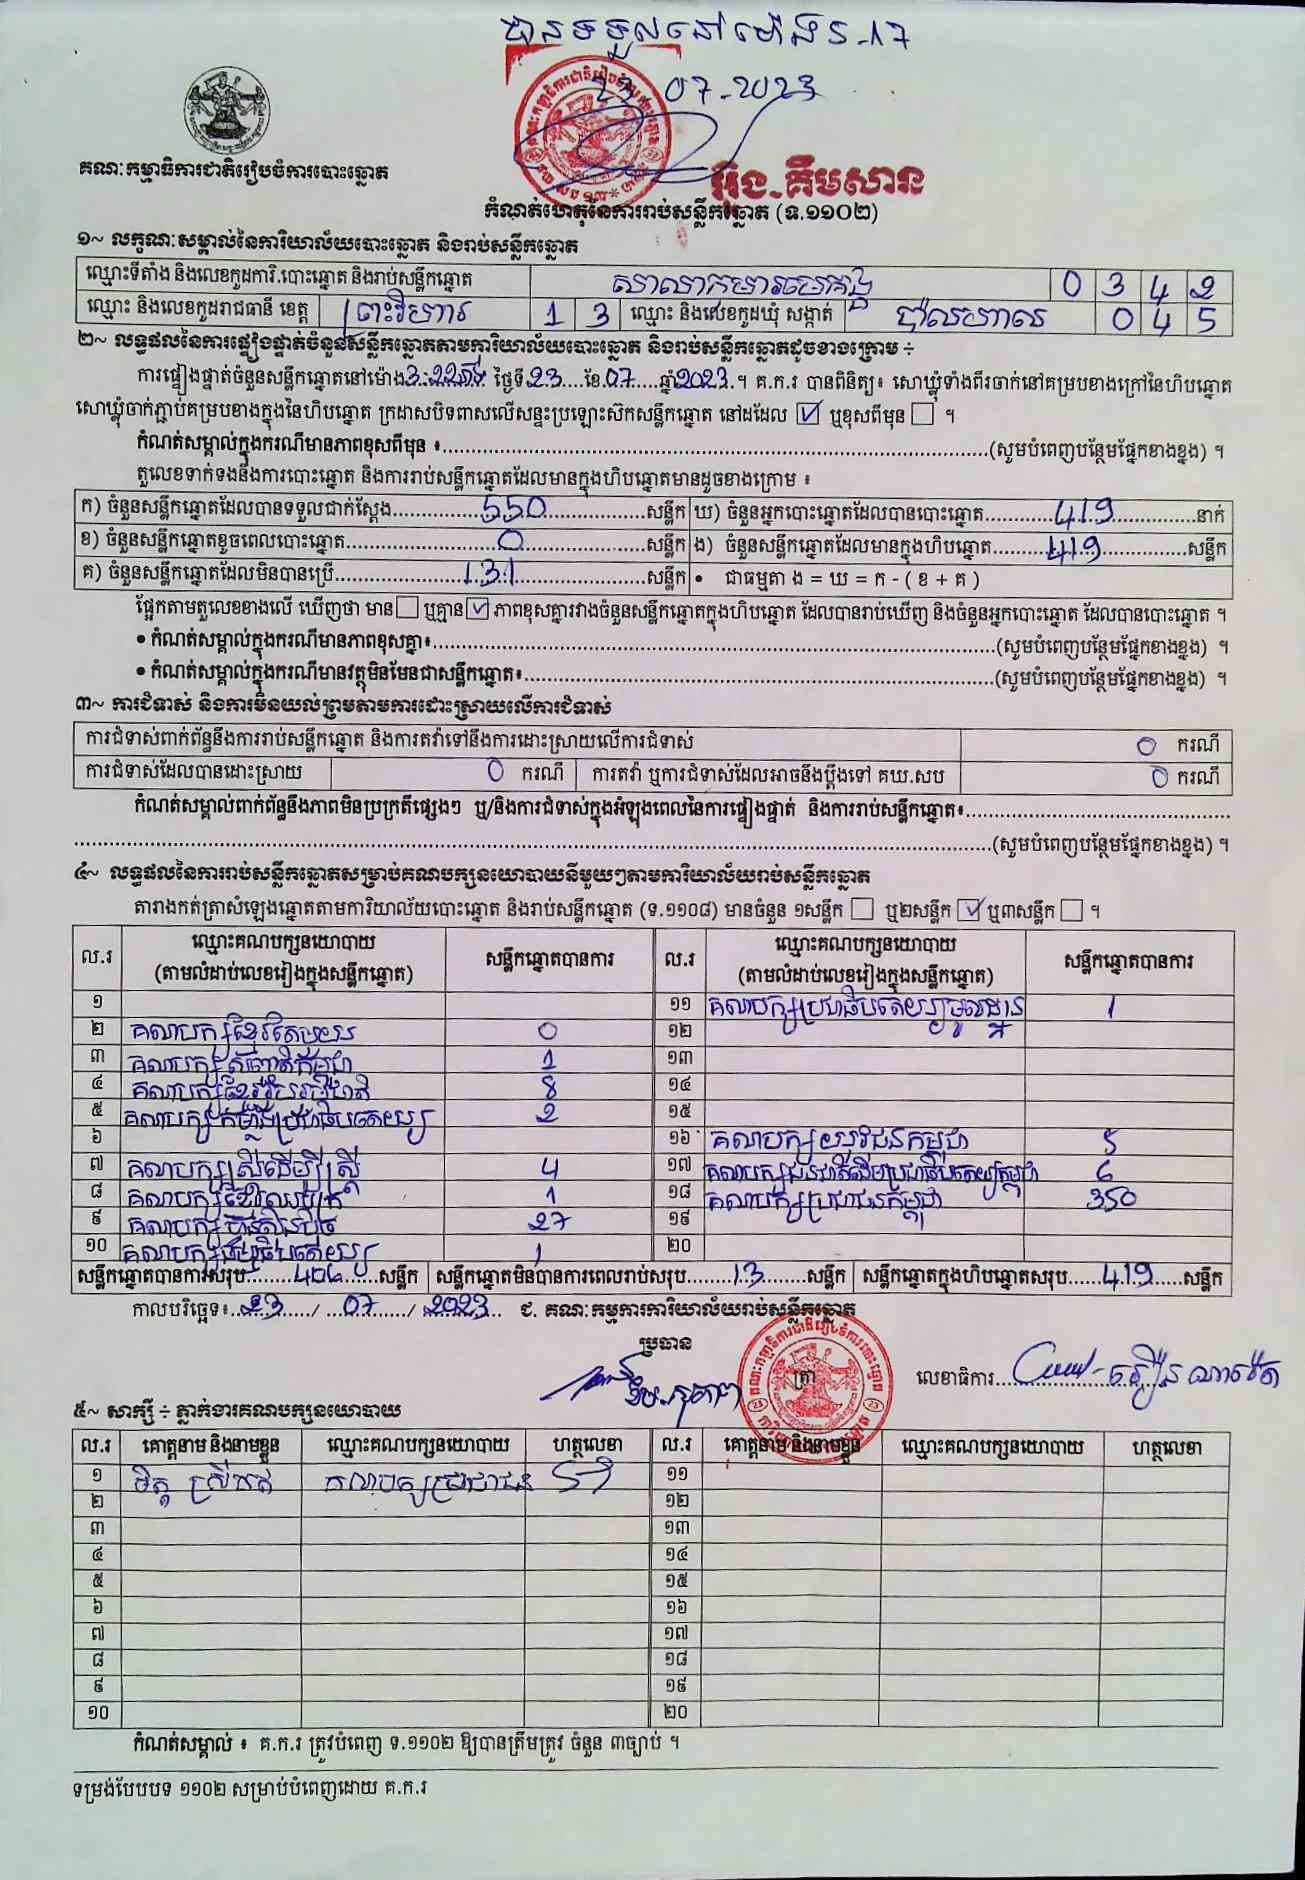 បានទទួលនៅម៉ោង 5-17
23 07-2023
គណៈកម្មាធិការជាតិរៀបចំការបោះឆ្នោត
អ៊ុង.គឹមសាន
កំណត់ហេតុនៃការរាប់សន្លឹកឆ្នោត (ទ.១១០២)
១~ លក្ខណៈសម្គាល់នៃការិយាល័យបោះឆ្នោត និងរាប់សន្លឹកឆ្នោត
ឈ្មោះទីតាំង និងលេខកូដការិ.បោះឆ្នោត និងរាប់សន្លឹកឆ្នោត សាលាកុមារមេគង្គ 0 3 4 2
ឈ្មោះ និងលេខកូដរាជធានី ខេត្ត ព្រះវិហារ 1 3 ឈ្មោះ និងលេខកូដឃុំ សង្កាត់ ប៉ាលហាល 0 4 5
២~ លទ្ធផលនៃការផ្ទៀងផ្ទាត់ចំនួនសន្លឹកឆ្នោតតាមការិយាល័យបោះឆ្នោត និងរាប់សន្លឹកឆ្នោតដូចខាងក្រោម ÷
ការផ្ទៀងផ្ទាត់ចំនួនសន្លឹកឆ្នោតនៅម៉ោង 3:22 ថ្ងៃទី 23 ខែ 07 ឆ្នាំ 2023 ។ គ.ក.រ បានពិនិត្យ៖ សោឃ្លុំទាំងពីរចាក់នៅគម្របខាងក្រៅនៃហិបឆ្នោត
សោឃ្លុំចាក់ភ្ជាប់គម្របខាងក្នុងនៃហិបឆ្នោត ក្រដាសបិទពាសលើសន្ទះប្រឡោះស៊កសន្លឹកឆ្នោត នៅដដែល ☑ ឬខុសពីមុន ☐ ។
កំណត់សម្គាល់ក្នុងករណីមានភាពខុសពីមុន ៖ (សូមបំពេញបន្ថែមផ្នែកខាងខ្នង) ។
តួលេខទាក់ទងនឹងការបោះឆ្នោត និងការរាប់សន្លឹកឆ្នោតដែលមានក្នុងហិបឆ្នោតមានដូចខាងក្រោម ៖
ក) ចំនួនសន្លឹកឆ្នោតដែលបានទទួលជាក់ស្តែង 550 សន្លឹក ឃ) ចំនួនអ្នកបោះឆ្នោតដែលបានបោះឆ្នោត 419 នាក់
ខ) ចំនួនសន្លឹកឆ្នោតខូចពេលបោះឆ្នោត 0 សន្លឹក ង) ចំនួនសន្លឹកឆ្នោតដែលមានក្នុងហិបឆ្នោត 419 សន្លឹក
គ) ចំនួនសន្លឹកឆ្នោតដែលមិនបានប្រើ 131 សន្លឹក • ជាធម្មតា ង = ឃ = ក - ( ខ + គ )
ផ្អែកតាមតួលេខខាងលើ ឃើញថា មាន ☐ ឬគ្មាន ☑ ភាពខុសគ្នារវាងចំនួនសន្លឹកឆ្នោតក្នុងហិបឆ្នោត ដែលបានរាប់ឃើញ និងចំនួនអ្នកបោះឆ្នោត ដែលបានបោះឆ្នោត ។
• កំណត់សម្គាល់ក្នុងករណីមានភាពខុសគ្នា៖ (សូមបំពេញបន្ថែមផ្នែកខាងខ្នង) ។
• កំណត់សម្គាល់ក្នុងករណីមានវត្ថុមិនមែនជាសន្លឹកឆ្នោត៖ (សូមបំពេញបន្ថែមផ្នែកខាងខ្នង) ។
៣~ ការជំទាស់ និងការមិនយល់ព្រមតាមការដោះស្រាយលើការជំទាស់
ការជំទាស់ពាក់ព័ន្ធនឹងការរាប់សន្លឹកឆ្នោត និងការតវ៉ាទៅនឹងការដោះស្រាយលើការជំទាស់ 0 ករណី
ការជំទាស់ដែលបានដោះស្រាយ 0 ករណី ការតវ៉ា ឬការជំទាស់ដែលអាចនឹងប្តឹងទៅ គឃ.សប 0 ករណី
កំណត់សម្គាល់ពាក់ព័ន្ធនឹងភាពមិនប្រក្រតីផ្សេងៗ ឬ/និងការជំទាស់ក្នុងអំឡុងពេលនៃការផ្ទៀងផ្ទាត់ និងការរាប់សន្លឹកឆ្នោត៖
(សូមបំពេញបន្ថែមផ្នែកខាងខ្នង) ។
៤~ លទ្ធផលនៃការរាប់សន្លឹកឆ្នោតសម្រាប់គណបក្សនយោបាយនីមួយៗតាមការិយាល័យរាប់សន្លឹកឆ្នោត
តារាងកត់ត្រាសំឡេងឆ្នោតតាមការិយាល័យបោះឆ្នោត និងរាប់សន្លឹកឆ្នោត (ទ.១១០៨) មានចំនួន ១សន្លឹក ☐ ឬ២សន្លឹក ☑ ឬ៣សន្លឹក ☐ ។
ល.រ ឈ្មោះគណបក្សនយោបាយ (តាមលំដាប់លេខរៀងក្នុងសន្លឹកឆ្នោត) សន្លឹកឆ្នោតបានការ ល.រ ឈ្មោះគណបក្សនយោបាយ (តាមលំដាប់លេខរៀងក្នុងសន្លឹកឆ្នោត) សន្លឹកឆ្នោតបានការ
១ ១១ គណបក្សប្រជាធិបតេយ្យមូលដ្ឋាន 1
២ គណបក្សខ្មែរតែមួយ 0 ១២
៣ គណបក្សសញ្ជាតិកម្ពុជា 1 ១៣
៤ គណបក្សខ្មែររួបរួមជាតិ 8 ១៤
៥ គណបក្សកម្លាំងប្រជាធិបតេយ្យ 2 ១៥
៦ ១៦ គណបក្សយុវជនកម្ពុជា 5
៧ គណបក្សស្រីដើម្បីស្រ្តី 4 ១៧ គណបក្សជនជាតិដើមប្រជាធិបតេយ្យកម្ពុជា 6
៨ 1 ១៨ គណបក្សប្រជាជនកម្ពុជា 350
៩ គណបក្សហ៊្វុនស៊ិនប៉ិច 27 ១៩
១០ គណបក្សធម្មាធិបតេយ្យ 1 ២០
សន្លឹកឆ្នោតបានការសរុប 406 សន្លឹក សន្លឹកឆ្នោតមិនបានការពេលរាប់សរុប 13 សន្លឹក សន្លឹកឆ្នោតក្នុងហិបឆ្នោតសរុប 419 សន្លឹក
កាលបរិច្ឆេទ៖ 23 / 07 / 2023 ជ. គណៈកម្មការការិយាល័យរាប់សន្លឹកឆ្នោត
ប្រធាន ត្រា លេខាធិការ
៥~ សាក្សី ÷ ភ្នាក់ងារគណបក្សនយោបាយ
ល.រ គោត្តនាម និងនាមខ្លួន ឈ្មោះគណបក្សនយោបាយ ហត្ថលេខា ល.រ គោត្តនាម និងនាមខ្លួន ឈ្មោះគណបក្សនយោបាយ ហត្ថលេខា
១ គណបក្សប្រជាជន ១១
២ ១២
៣ ១៣
៤ ១៤
៥ ១៥
៦ ១៦
៧ ១៧
៨ ១៨
៩ ១៩
១០ ២០
កំណត់សម្គាល់ ៖ គ.ក.រ ត្រូវបំពេញ ទ.១១០២ ឱ្យបានត្រឹមត្រូវ ចំនួន ៣ច្បាប់ ។
ទម្រង់បែបបទ ១១០២ សម្រាប់បំពេញដោយ គ.ក.រ